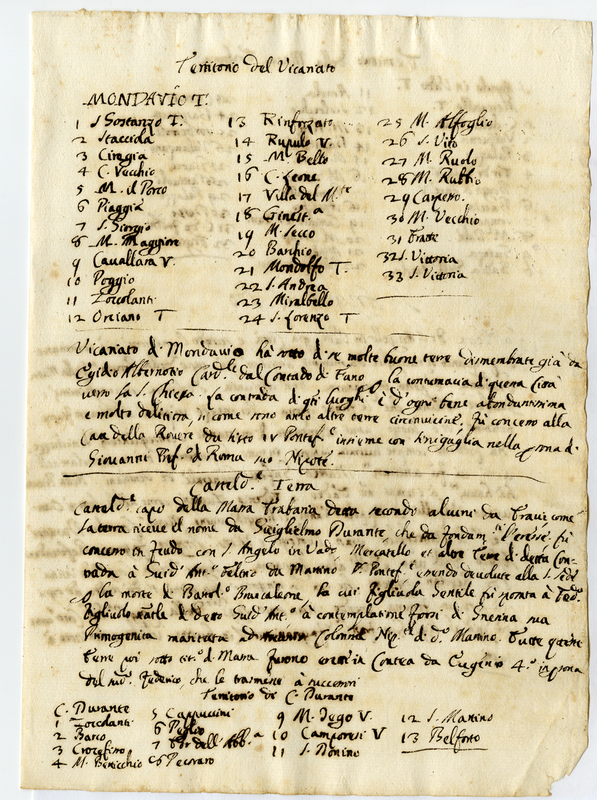 Territorio del Vicariato
MONDAVIO T.
1 S Gostanzo T.
2 Staccida
3 Ciresia
4 C. Vecchio
5 M. il Porco
6 Piaggia
7 S. Giorgio
8 M. Maggiore
9 Cavallara V.
10 Poggio
11 Zoccolanti
12 Orciano T
13 Rinforzato
14 Rupulo V.
15 M. Bello
16 C. Leone
17 Villa del M.te
18 Ginest.a
19 M. Secco
20 Barchio
21 Mondolfo T.
22 S. Andrea
23 Mirabello
24 S. Lorenzo T
25 M. Alfoglio
26 S. Vito
27 M. Ruolo
28 M. Rubbio
29 Campero.
30 M. Vecchio
31 Fratte
32 S. Vittoria
33 S. Vittoria
Vicariato di Mondavio hà sotto di se molte buone terre dismembrate già da
Egidio Albernotio Card.le dal Contado di Fano la contumacia di quella Città
verso la S. Chiesa. La contrada di q.ti luoghi è d'ogni bene abondantissima
e molto delitiosa, si come sono anco altre terre circonvicine, fù concesso alla
Casa della Rovere da Sisto IV Pontef.e insieme con Sinigaglia nella psona di
Giovanni Pref.o di Roma suo Nipote.
Casteld.e Terra
Casteld.e capo della Massa Trabaria detta secondo alcuni da Travi come
La terra riceve il nome da Guiglielmo Durante, che da fondam.ti l'eresse, fù
concesso in feudo con S. Angelo in Vado, Mercatello et altre Terre di detta Con-
trada à Guid' Ant.o Feltrio da Martino V. Pontef.e essendo devolute alla S. Sede
la morte di Bartol.o Brancaleone, la cui figliuola Gentile fù sposata à Fed.o
figliuolo di detto Guid' Ant.o à contemplatione forsi di
Primogenita maritata ad Colonna Nep.e di d.o Martino. Tutte queste
terre poi sotto tit.o di Massa furono erette in Contea da Eugenio 4.o in psona
del Federico, che le trasmesse à successori
Territorio de C. Durante
C. Durante
1 Zoccolanti
2 Barco
3 Crocefisso
4 M. Benicchio
5 Cappuccini
6 Peglio
7 dell' Abb.a
8 Pecsaro
9 M. Jego V.
10 Camporesi V
11 S. Donino
12 S. Martino
13 Belforte